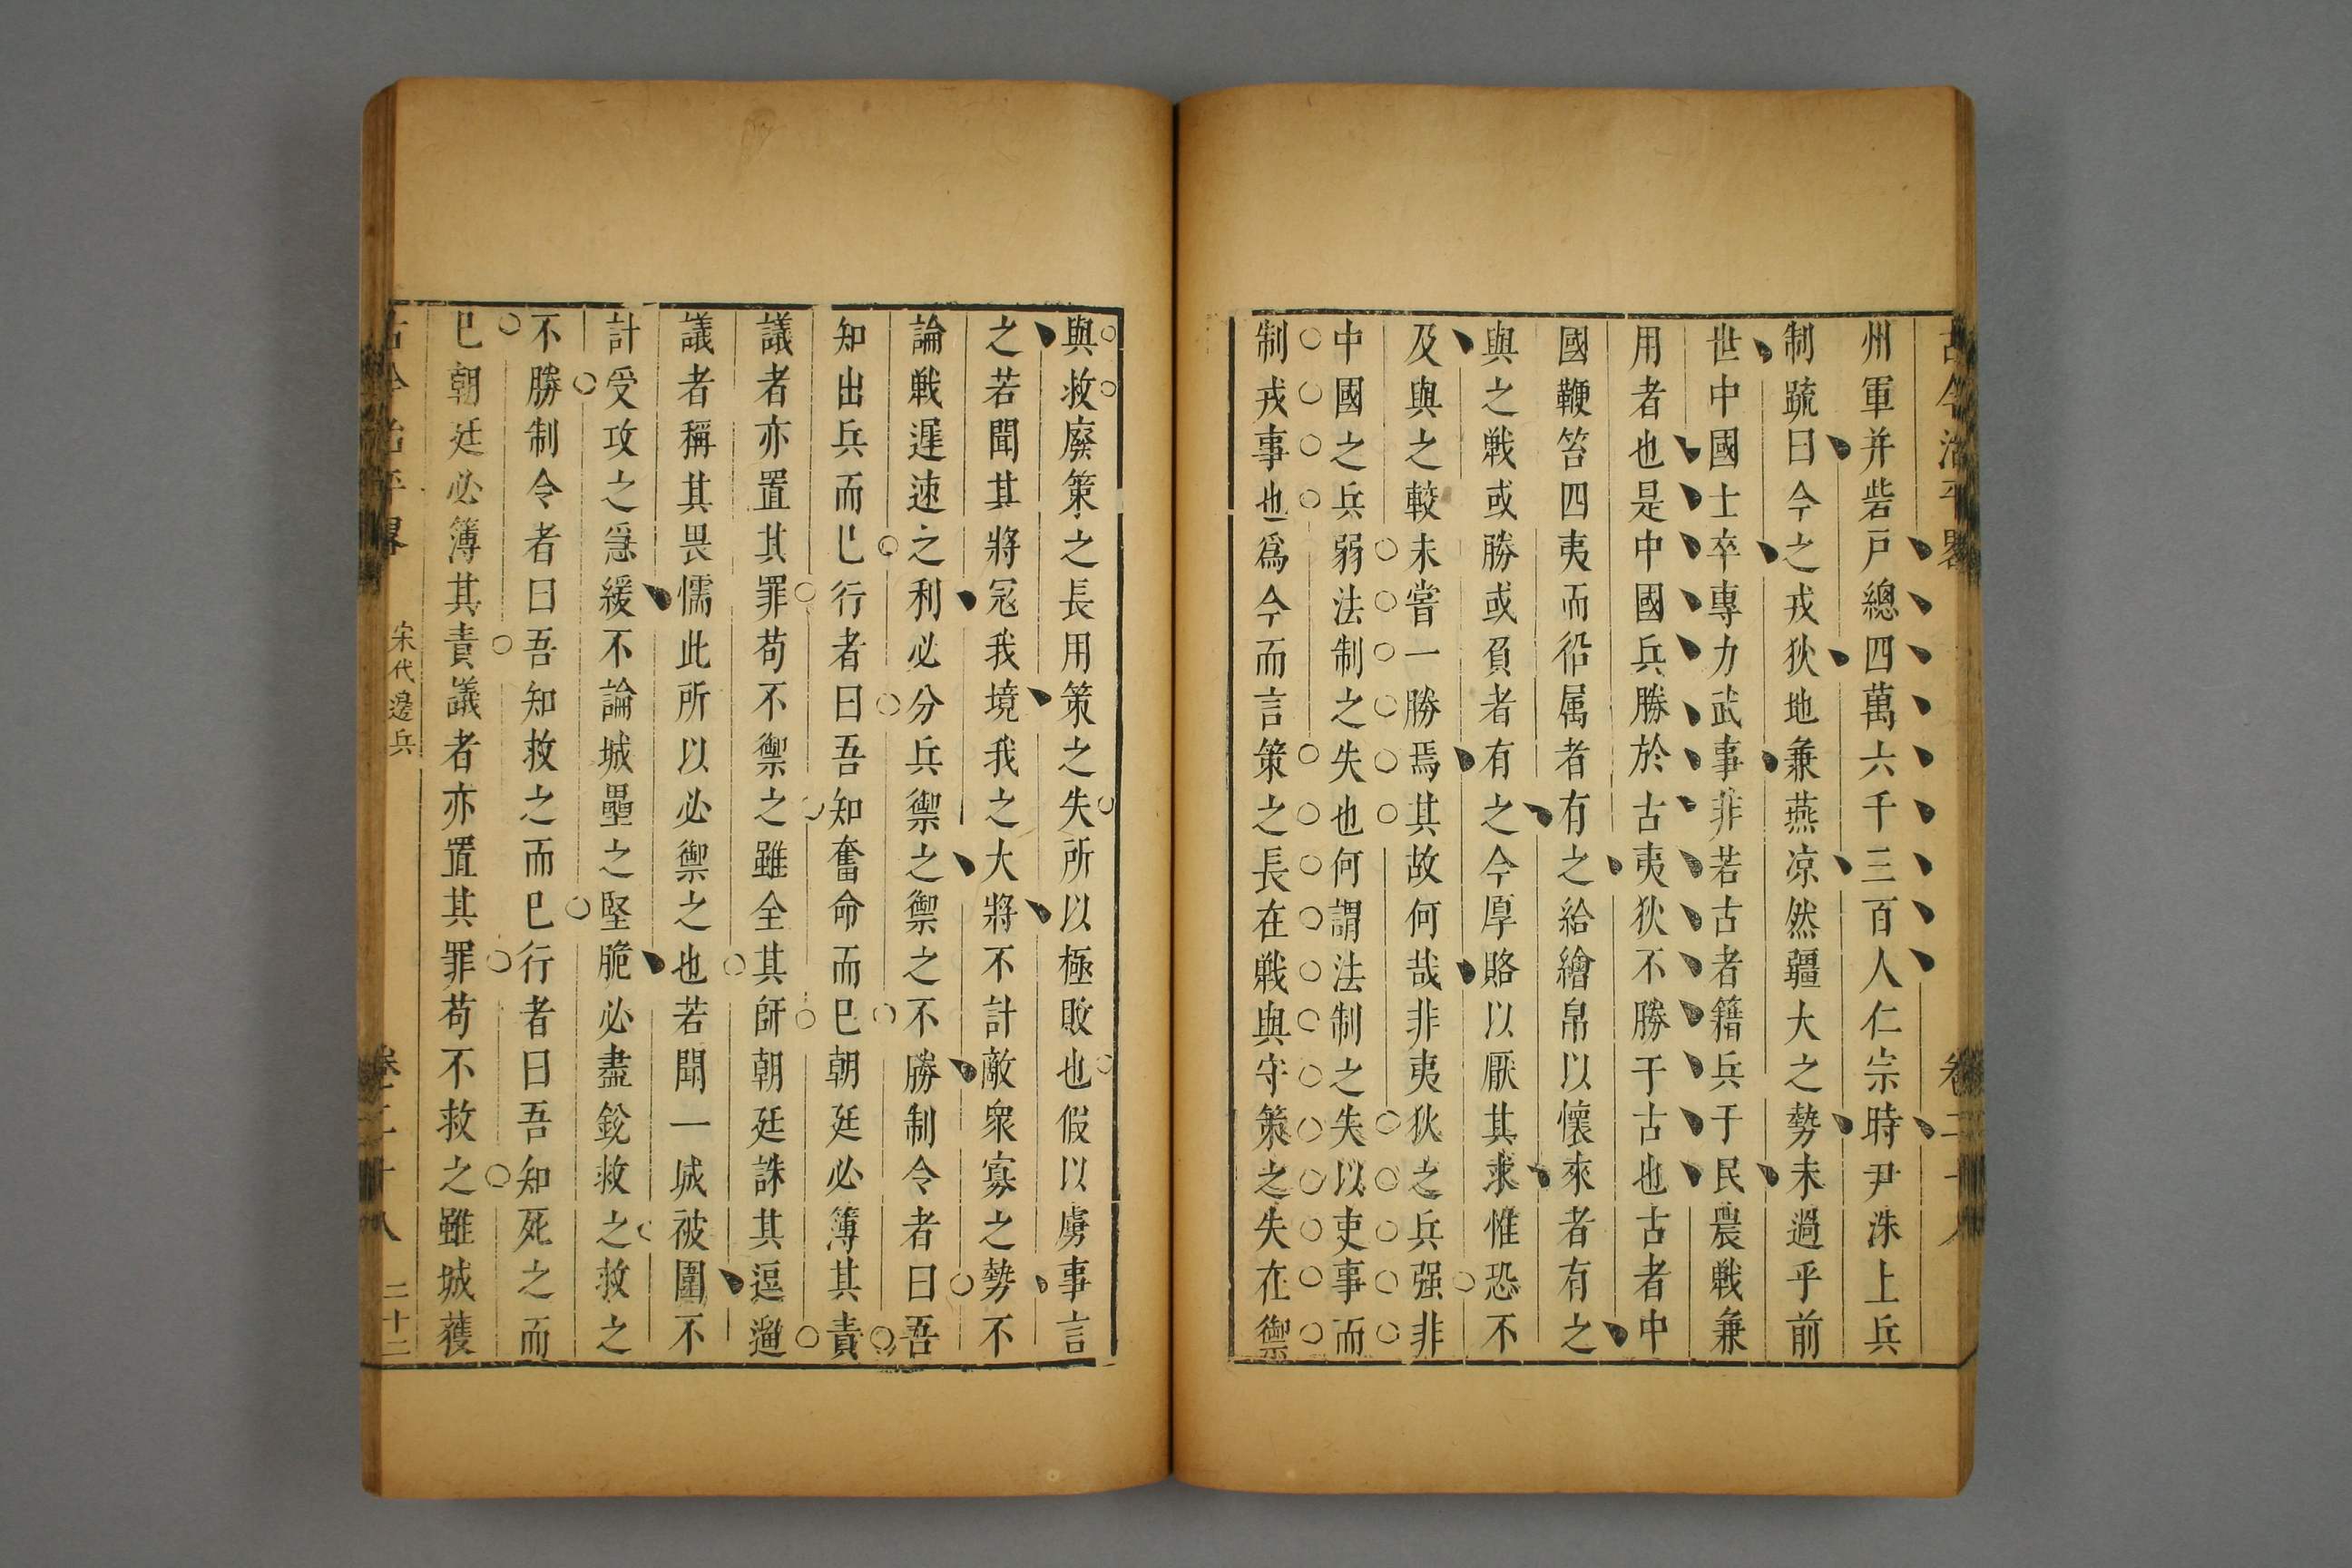 古今治平畧 卷二十八
州軍并砦戸總四萬六千三百人仁宗時尹洙上兵
制䟽曰今之戎狄地兼燕凉然疆大之勢未過乎前
世中國士卒專力武事非若古者籍兵于民農戦兼
用者也是中國兵勝於古夷狄不勝于古也古者中
國鞭笞四夷而役属者有之給繒帛以懷來者有之
與之戦或勝或負者有之今厚賂以厭其求惟恐不
及與之較未嘗一勝焉其故何哉非夷狄之兵强非
中國之兵弱法制之失也何謂法制之失以吏事而
制戎事也爲今而言策之長在戦與守策之失在禦
與救廢策之長用策之失所以極敗也假以虜事言
之若聞其將冦我境我之大將不計敵衆寡之勢不
論戦遲速之利必分兵禦之禦之不勝制令者曰吾
知出兵而已行者曰吾知奮命而已朝廷必簿其責
議者亦置其罪苟不禦之雖全其師朝廷誅其逗遛
議者稱其畏懦此所以必禦之也若聞一城被圍不
計受攻之急緩不論城壘之堅脆必盡銳救之救之
不勝制令者曰吾知救之而已行者曰吾知死之而
已朝廷必簿其責議者亦置其罪苟不救之雖城獲
古今治平畧 宋代邊兵 卷二十八 二十二